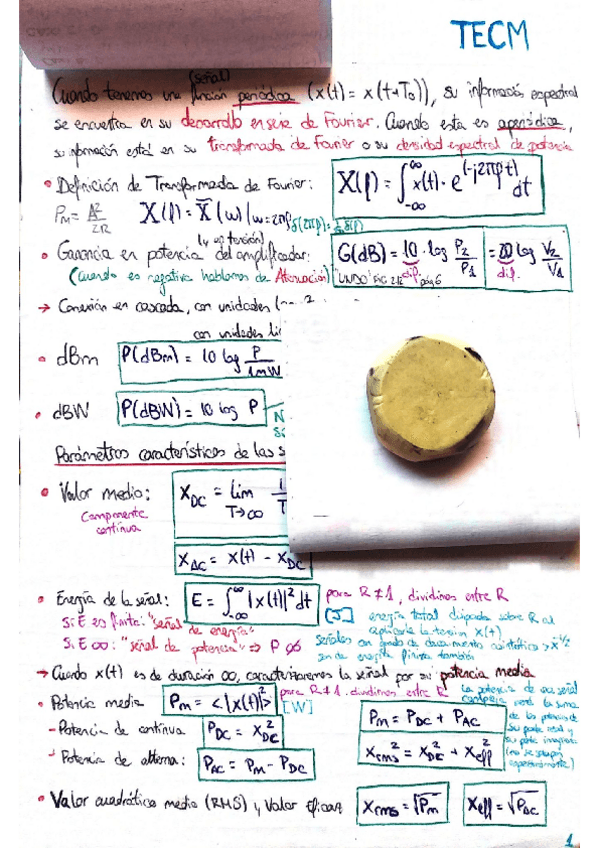 TECM
(señal)
Cuando tenemos una función periódica (x(t) = x(t+T₀)), su información espectral
se encuentra en su desarrollo en serie de Fourier. Cuando esta es aperiódica,
su información está en su transformada de Fourier o su densidad espectral de potencia
• Definición de Transformada de Fourier: X(f) = ∫_{-∞}^{∞} x(t)· e^(-j2πft) dt
P_M = A²/2R X(f) = X̄(ω)|ω=2πf
(y en tensión)
• Ganancia en potencia del amplificador: G(dB) = 10 · log P₂/P₁ = 20 log V₂/V₁
(Cuando es negativa hablamos de Atenuación) dif. dif.
→ Conexión en cascada, con unidades
con unidades
• dBm P(dBm) = 10 log P/1mW
• dBW P(dBW) = 10 log P
Parámetros característicos de las s
• Valor medio: X_DC = lim T→∞ 1/T
Componente
continua
X_AC = x(t) - X_DC
• Energía de la señal: E = ∫_{-∞}^{∞} |x(t)|² dt para R≠1, dividimos entre R
Si E es finita: "señal de energía" [J] energía total disipada sobre R al
aplicarle la tensión x(t)
Si E ∞: "señal de potencia" ⇒ P
son de energía finita también
→ Cuando x(t) es de duración ∞, caracterizaremos la señal por su potencia media
• Potencia media P_M = <|x(t)|²> para R≠1, dividimos entre R [W]
- Potencia de continua P_DC = X_DC²
- Potencia de alterna: P_AC = P_M - P_DC
P_M = P_DC + P_AC
X_rms² = X_DC² + X_eff²
La potencia de una señal
compleja será la suma
de las potencias de
su parte real y
su parte imaginaria
• Valor cuadrático medio (RMS) y Valor Eficaz X_rms = √P_M X_eff = √P_AC
1